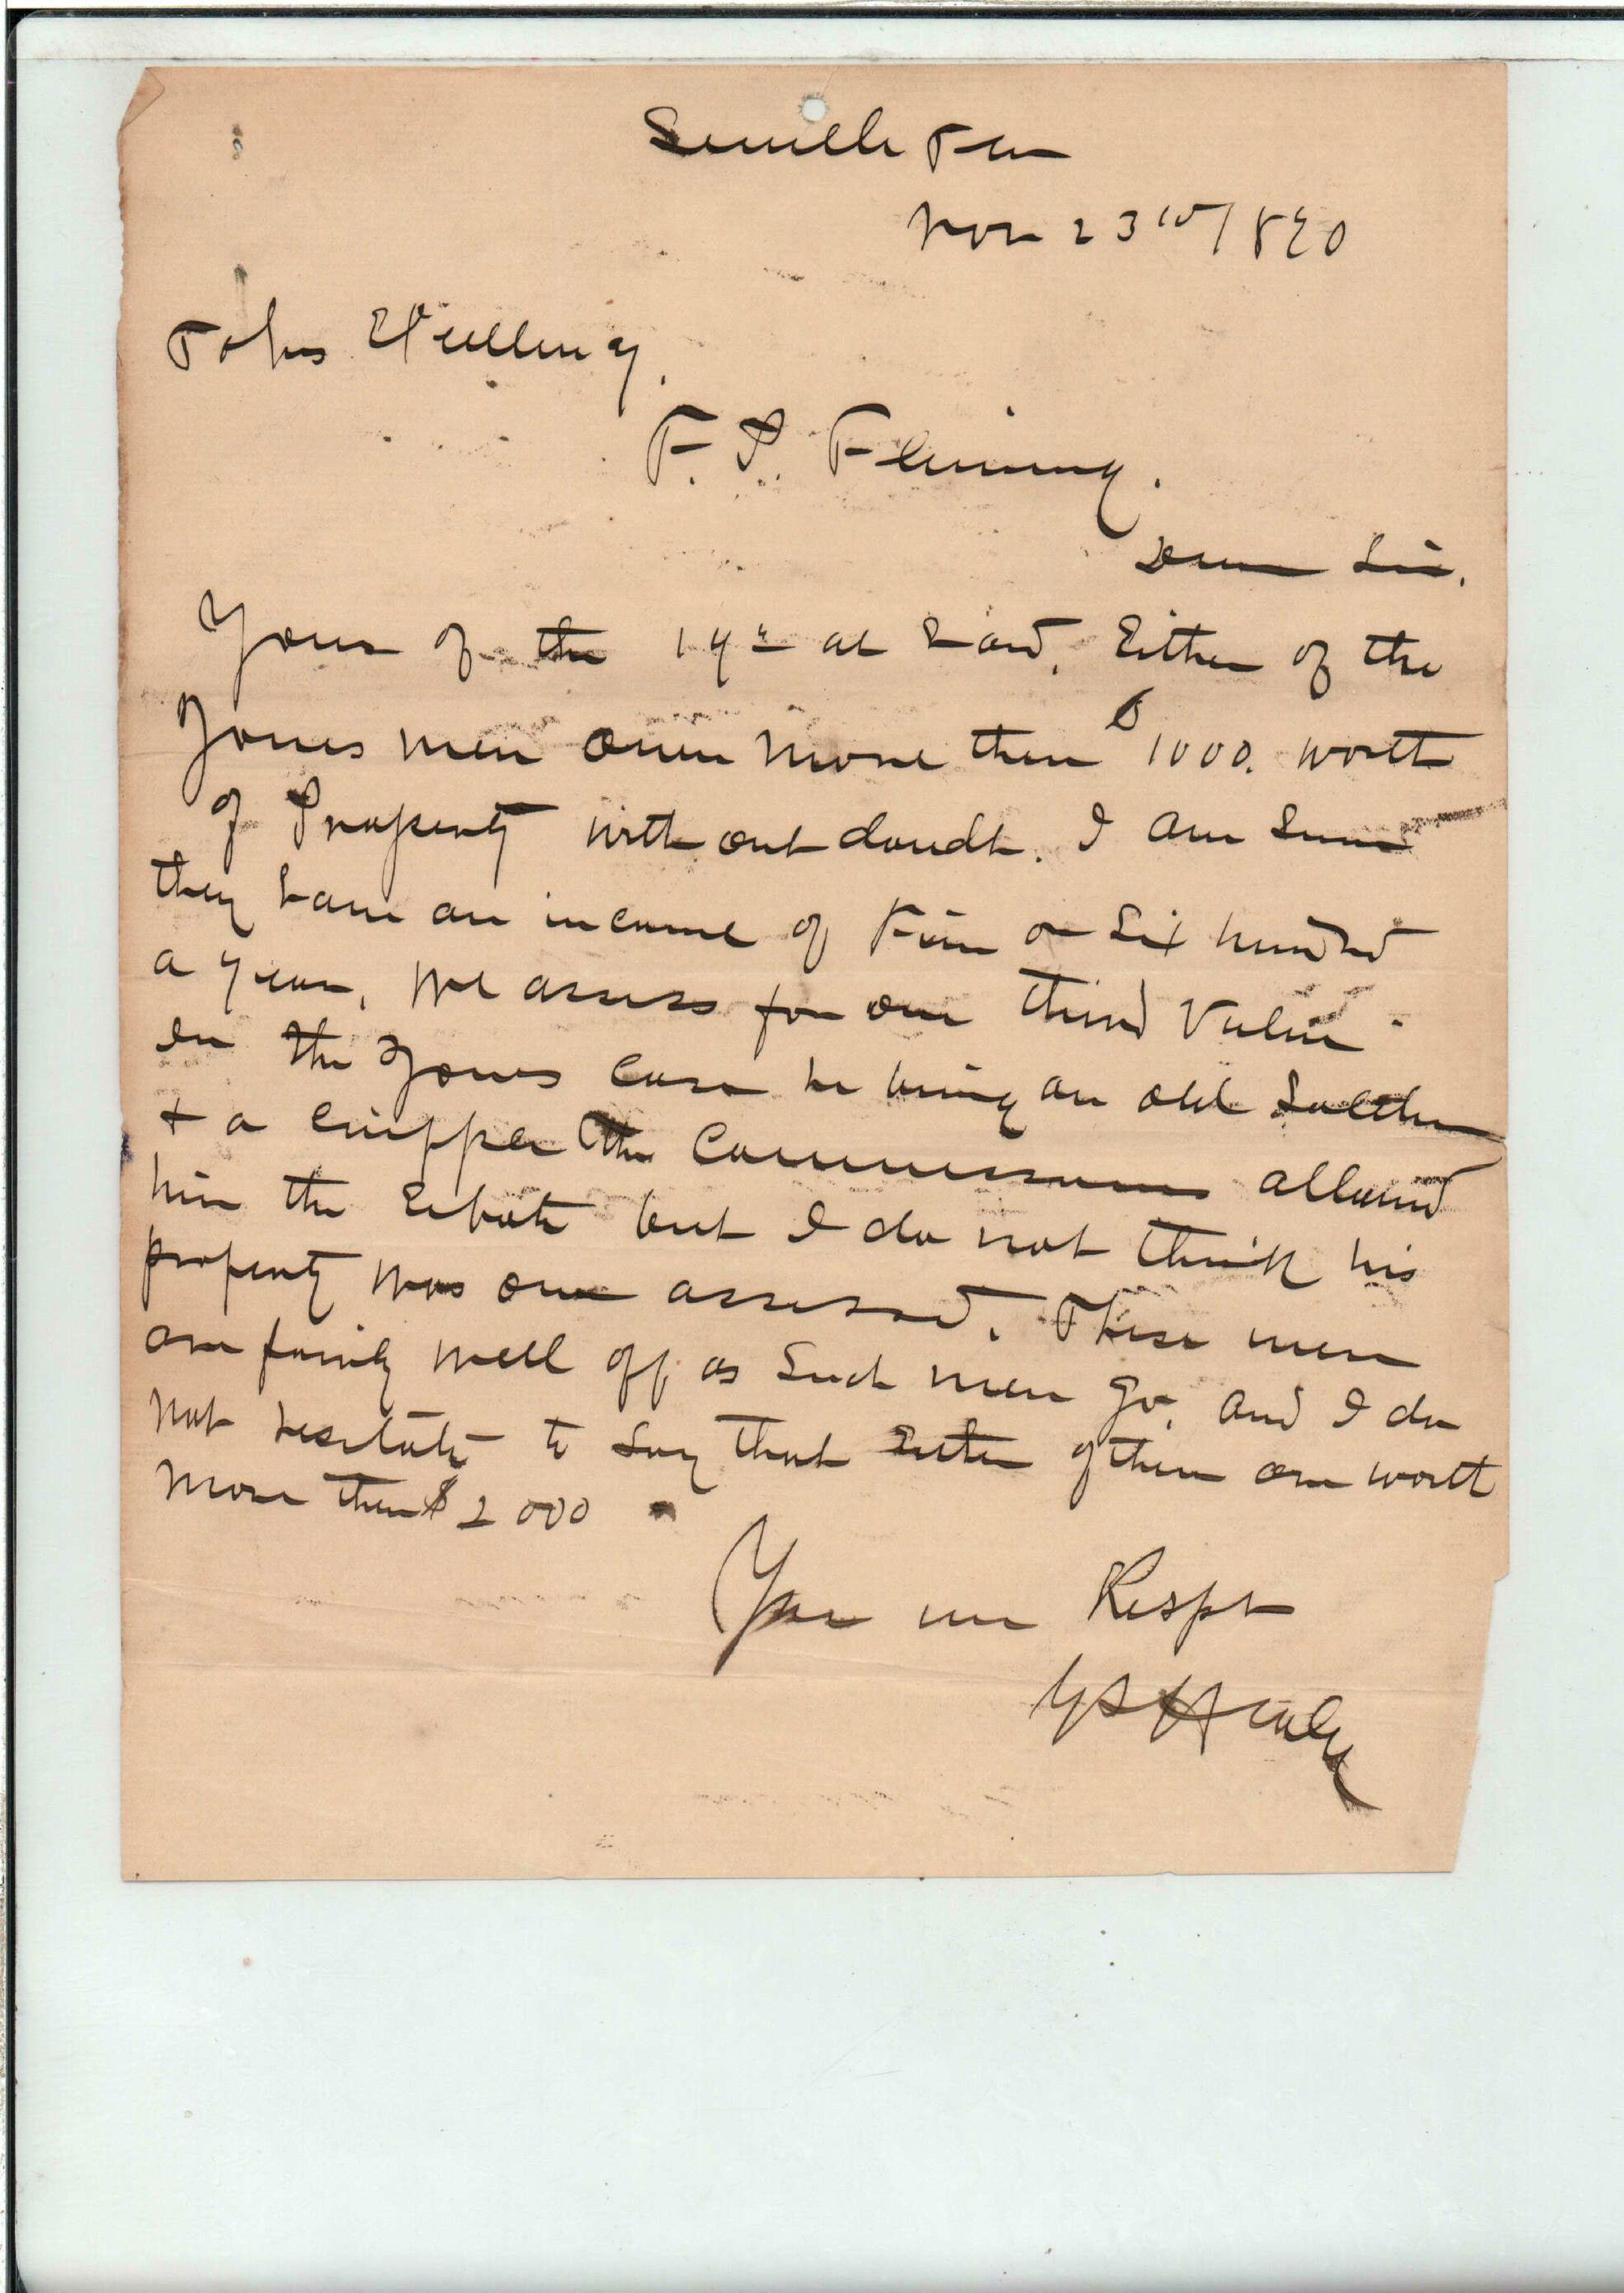 Seville Fla
Nov 23rd / 890
To his Excellency.
F. P. Fleming.
Dear Sir.
Yours of the 19th at hand. Either of the
Jones men own more then $1000. worth
of Property without doudt. I am sure
they have an income of Five or Six hundred
a year, We assess for one third Value
in the Jones case he being an old Soldier
& a cripple the Commissioners allowed
him the Rebate but I do not think his
property was over assessed. These men
are fairly well off, as Such men go, and I do
not hesitate to say that Either of them are worth
more then $2000
Your Respt